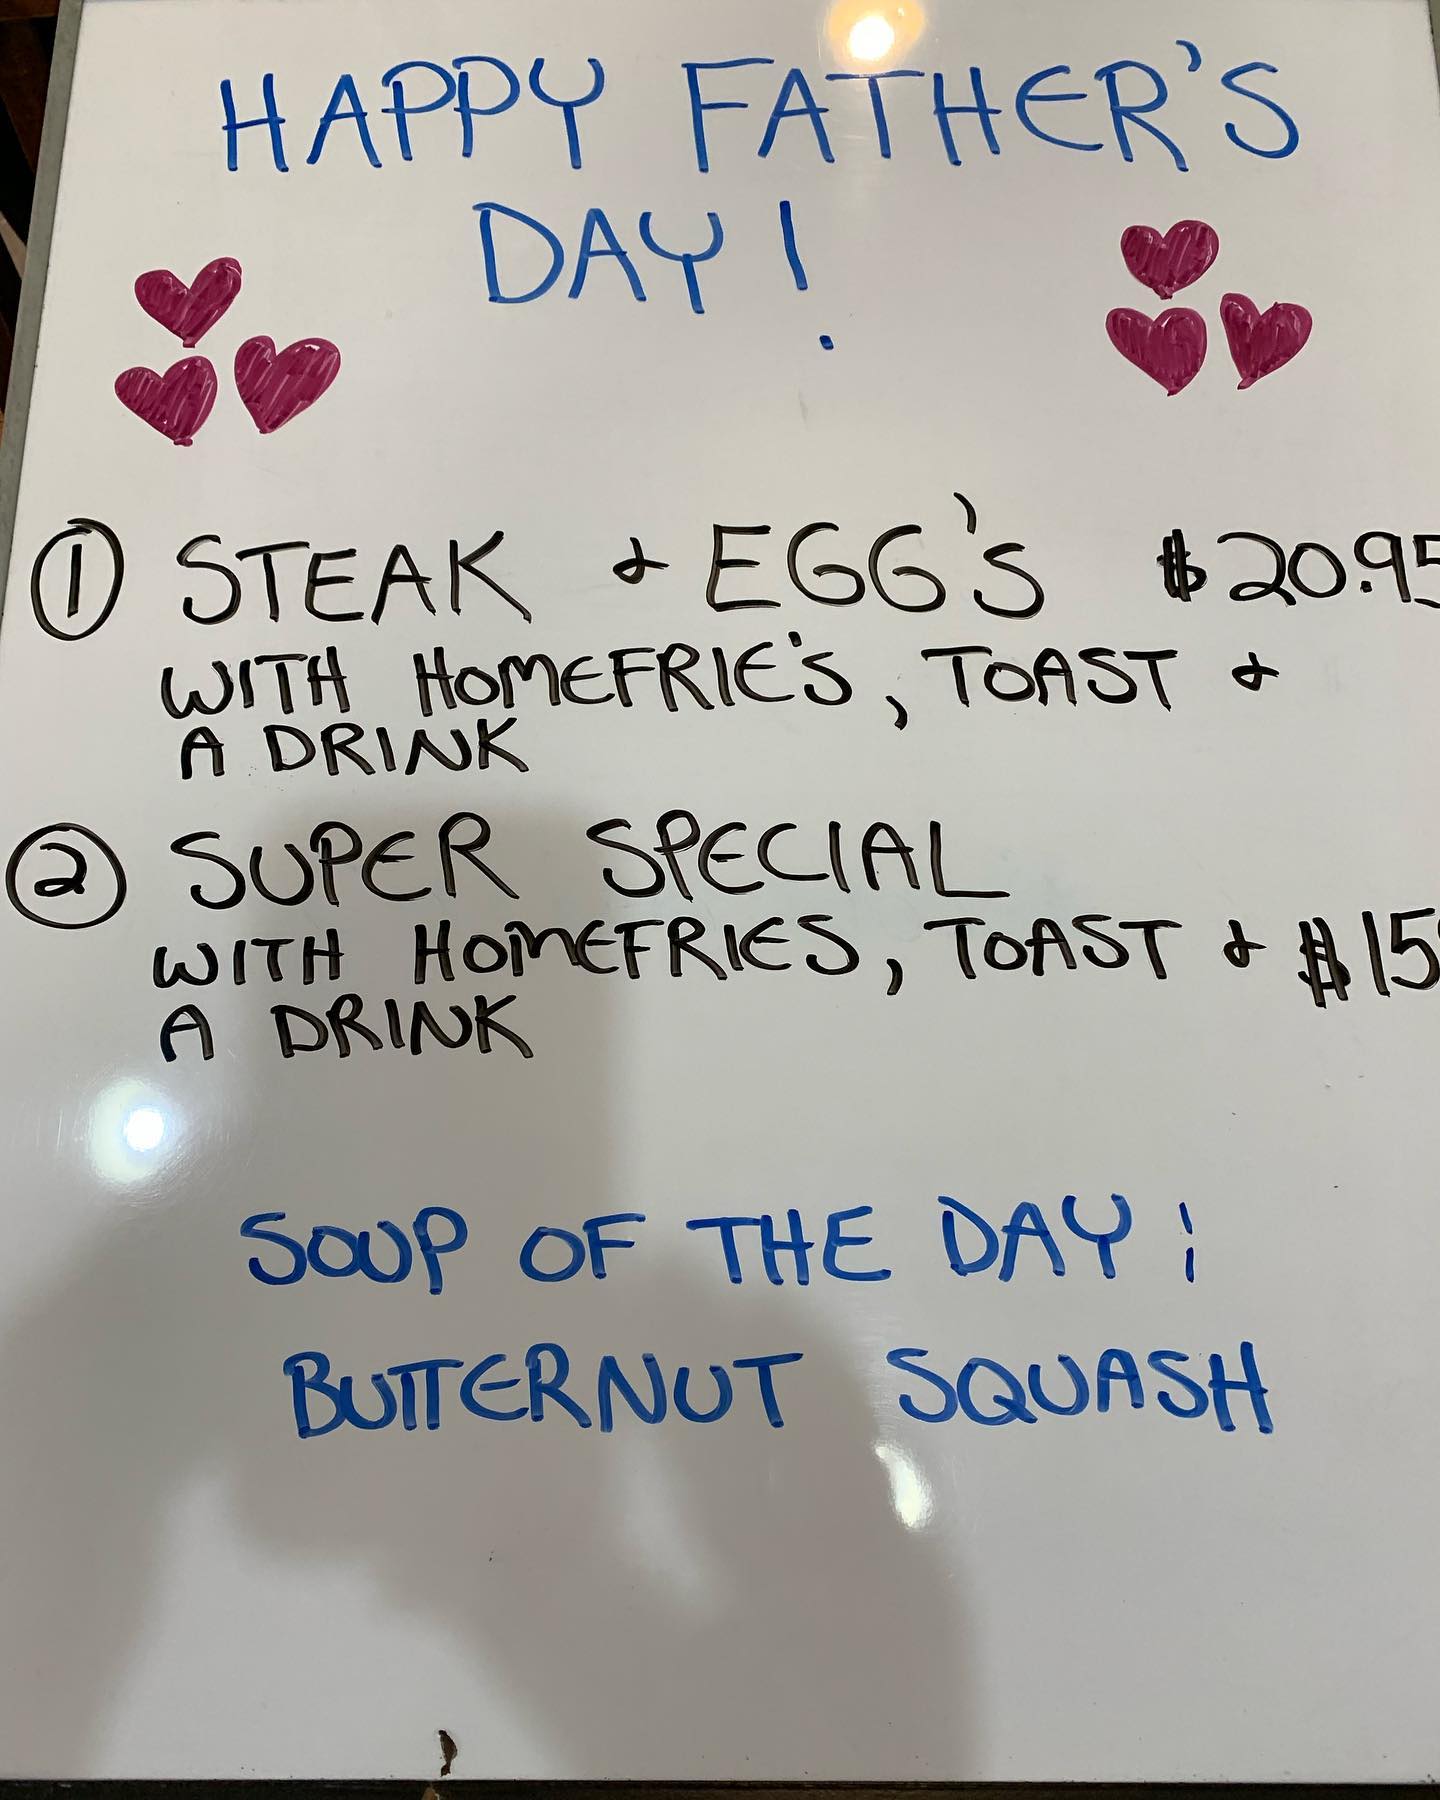 HAPPY FATHER'S
DAY!
1 STEAK & EGG'S $20.95
WITH HOMEFRIE'S, TOAST &
A DRINK
2 SUPER SPECIAL
WITH HOMEFRIES, TOAST & $15
A DRINK
SOUP OF THE DAY:
BUTTERNUT SQUASH